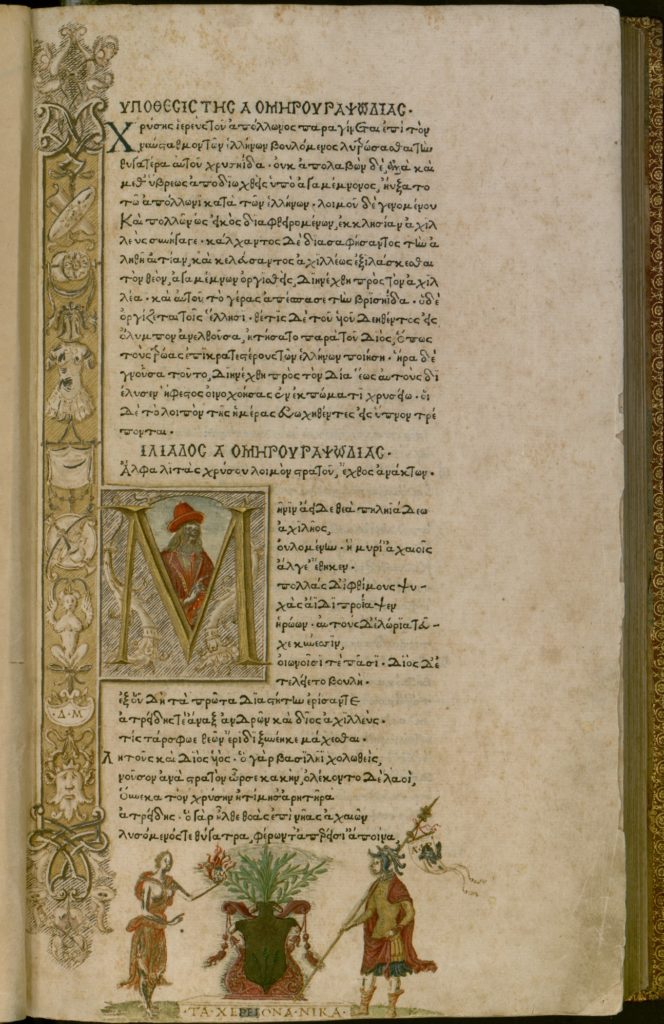 ΥΠΟΘΕΣΙΣ ΤΗΣ Α ΟΜΗΡΟΥ ΡΑΨΩΔΙΑΣ·
Χρύσης ἱερεὺς τοῦ ἀπόλλωνος παραγίνεται ἐπὶ τὸν
ναύσταθμον τῶν ἑλλήνων βουλόμενος λυτρώσασθαι τὴν
θυγατέρα αὐτοῦ χρυσηίδα· οὐκ ἀπολαβὼν δέ, καὶ
μεθ' ὕβρεως ἀποδιωχθεὶς ὑπὸ ἀγαμέμνονος, ηὔξατο
τῷ ἀπόλλωνι κατὰ τῶν ἑλλήνων· λοιμοῦ δὲ γενομένου
καὶ πολλῶν ὡς εἰκὸς διαφθειρομένων, ἐκκλησίαν ἀχιλ
λεὺς συνήγαγε· κάλχαντος δὲ διασαφήσαντος τὴν ἀ
ληθῆ αἰτίαν, καὶ κελεύσαντος ἀχιλλέως ἐξιλάσκεσθαι
τὸν θεόν, ἀγαμέμνων ὀργισθείς, διηνέχθη πρὸς τὸν ἀχιλ
λέα· καὶ αὐτοῦ τὸ γέρας ἀπέσπασε τὴν βρισηίδα· ὁ δὲ
ὀργίζεται τοῖς ἕλλησι· θέτις δὲ τοῦ υἱοῦ δεηθέντος εἰς
ὄλυμπον ἀνελθοῦσα, ᾐτήσατο παρὰ τοῦ Διός, ὅπως
τοὺς τρῶας ἐπικρατεστέρους τῶν ἑλλήνων ποιήσῃ· ἥρα δὲ
γνοῦσα τοῦτο, διηνέχθη πρὸς τὸν δία ἕως αὐτοὺς δι
έλυσεν ἥφαιστος οἰνοχοήσας ἐν ἐκπώματι χρυσῷ· οἱ
δὲ τὸ λοιπὸν τῆς ἡμέρας εὐωχηθέντες εἰς ὕπνον τρέ
πονται·
ΙΛΙΑΔΟΣ Α ΟΜΗΡΟΥ ΡΑΨΩΔΙΑΣ·
Ἄλφα λιτὰς χρύσου λοιμὸν στρατοῦ, ἔχθος ἀνάκτων·
Μῆνιν ἄειδε θεὰ πηληιάδεω
ἀχιλῆος,
οὐλομένην· ἣ μυρί' ἀχαιοῖς
ἄλγε' ἔθηκεν·
πολλὰς δ' ἰφθίμους ψυ-
χὰς ἄϊδι προΐαψεν
ἡρώων· αὐτοὺς δ' ἑλώρια τεῦ-
χε κύνεσσιν,
οἰωνοῖσί τε πᾶσι· Διὸς δ' ἐ
τελείετο βουλή·
ἐξ οὗ δὴ τὰ πρῶτα διαστήτην ἐρίσαντε
ἀτρείδης τε ἄναξ ἀνδρῶν καὶ δῖος ἀχιλλεύς·
τίς τάρ σφωε θεῶν ἔριδι ξυνέηκε μάχεσθαι·
λητοῦς καὶ Διὸς υἱός· ὁ γὰρ βασιλῆι χολωθείς,
νοῦσον ἀνὰ στρατὸν ὦρσε κακήν, ὀλέκοντο δὲ λαοί,
οὕνεκα τὸν χρύσην ἠτίμησ' ἀρητῆρα
ἀτρείδης· ὁ γὰρ ἦλθε θοὰς ἐπὶ νῆας ἀχαιῶν
λυσόμενός τε θύγατρα, φέρων τ' ἀπερείσι' ἄποινα,
·Δ·Μ·
·ΤΑ ΧΕΡΕΙΟΝΑ ΝΙΚΑ·